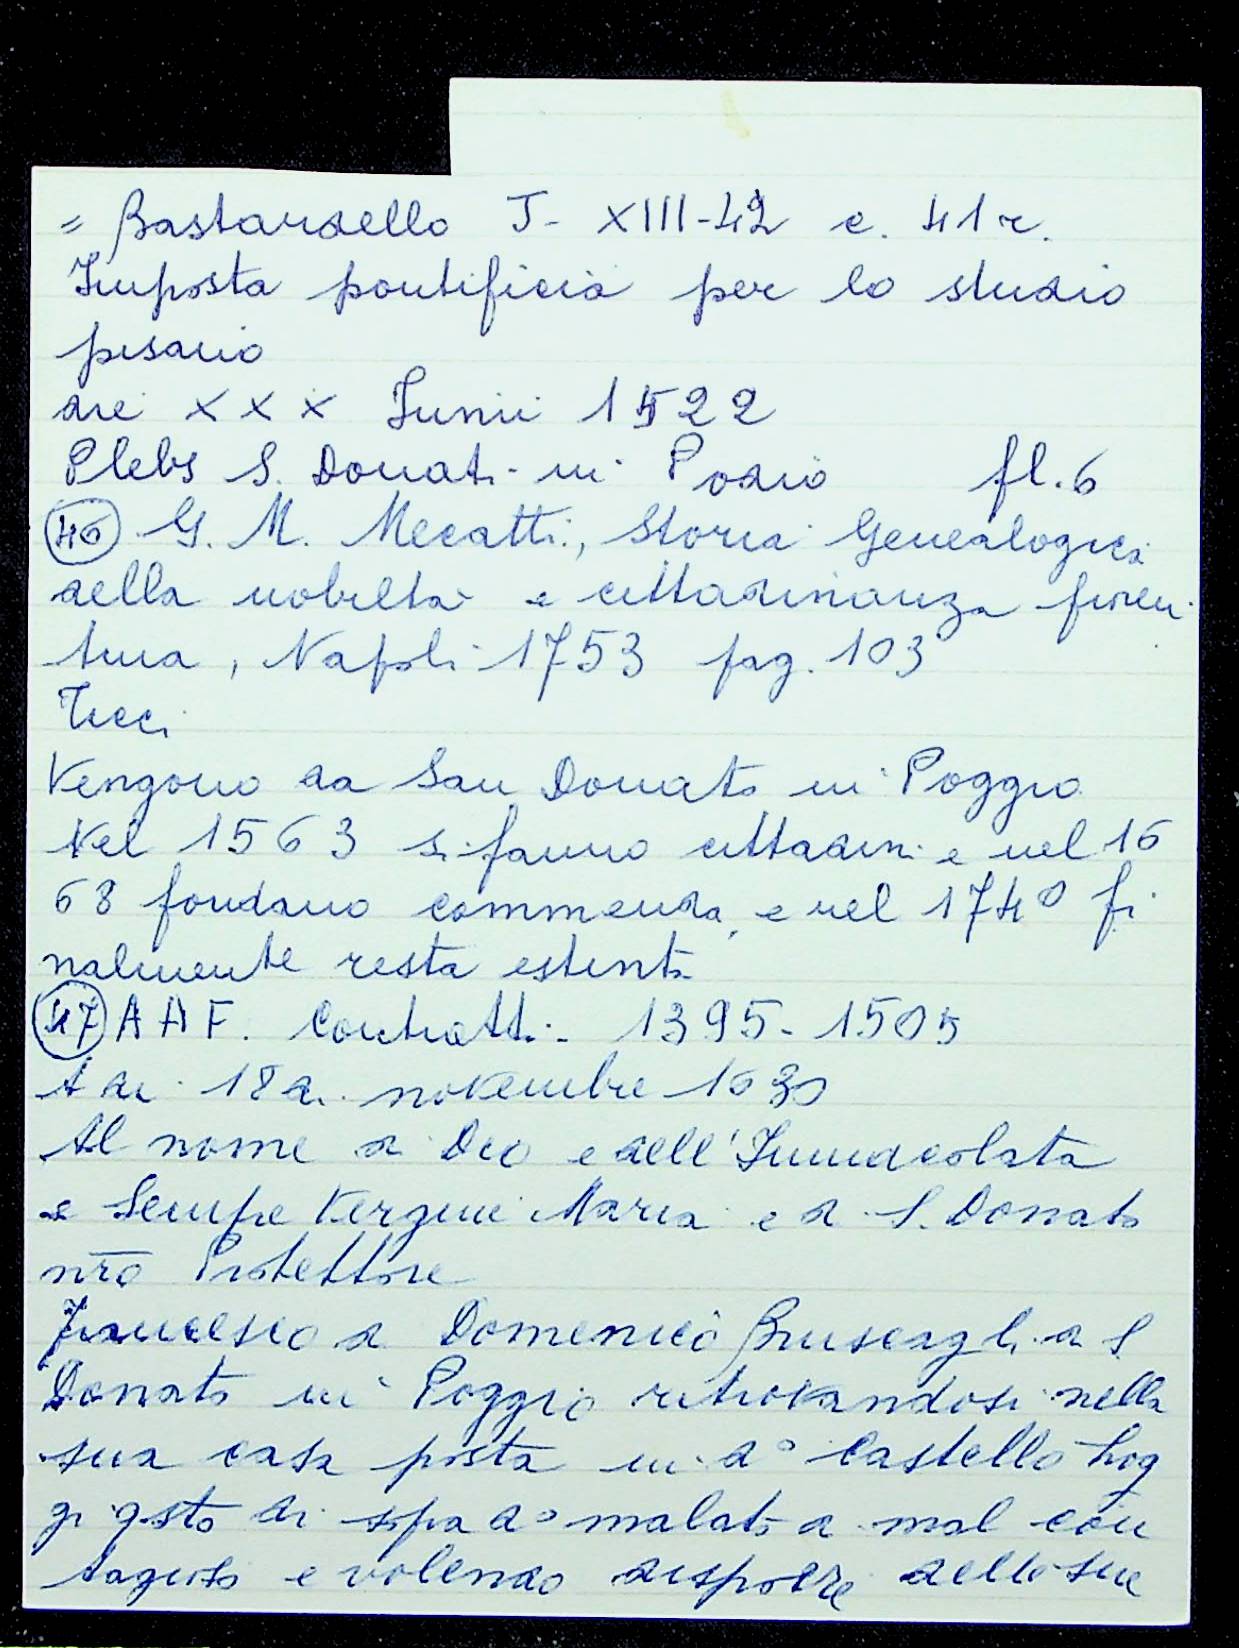 = Bastardello J- XIII-42 c. 41r.
Imposta pontificia per lo studio
pisano
die XXX Junii 1522
Plebs S. Donati in Podio fl. 6
46 G. M. Mecatti, Storia Genealogica
della nobiltà e cittadinanza fioren
tina, Napoli 1753 pag. 103
Ticci
Vengono da San Donato in Poggio
Nel 1563 si fanno cittadini e nel 16
68 fondano commenda, e nel 1740 fi
nalmente resta estinta
47 AAF. Contratti - 1395-1505
A di 18 di novembre 1630
Al nome di Dio e dell'Immacolata
e Sempe Vergine Maria e di S. Donato
nro Protettore
Francesco di Domenico Bruscagli di S.
Donato in Poggio ritrovandosi nella
sua casa posta in do Castello hog
gi qsto di sopa do malato di mal con
tagioso e volendo disporre delle sue